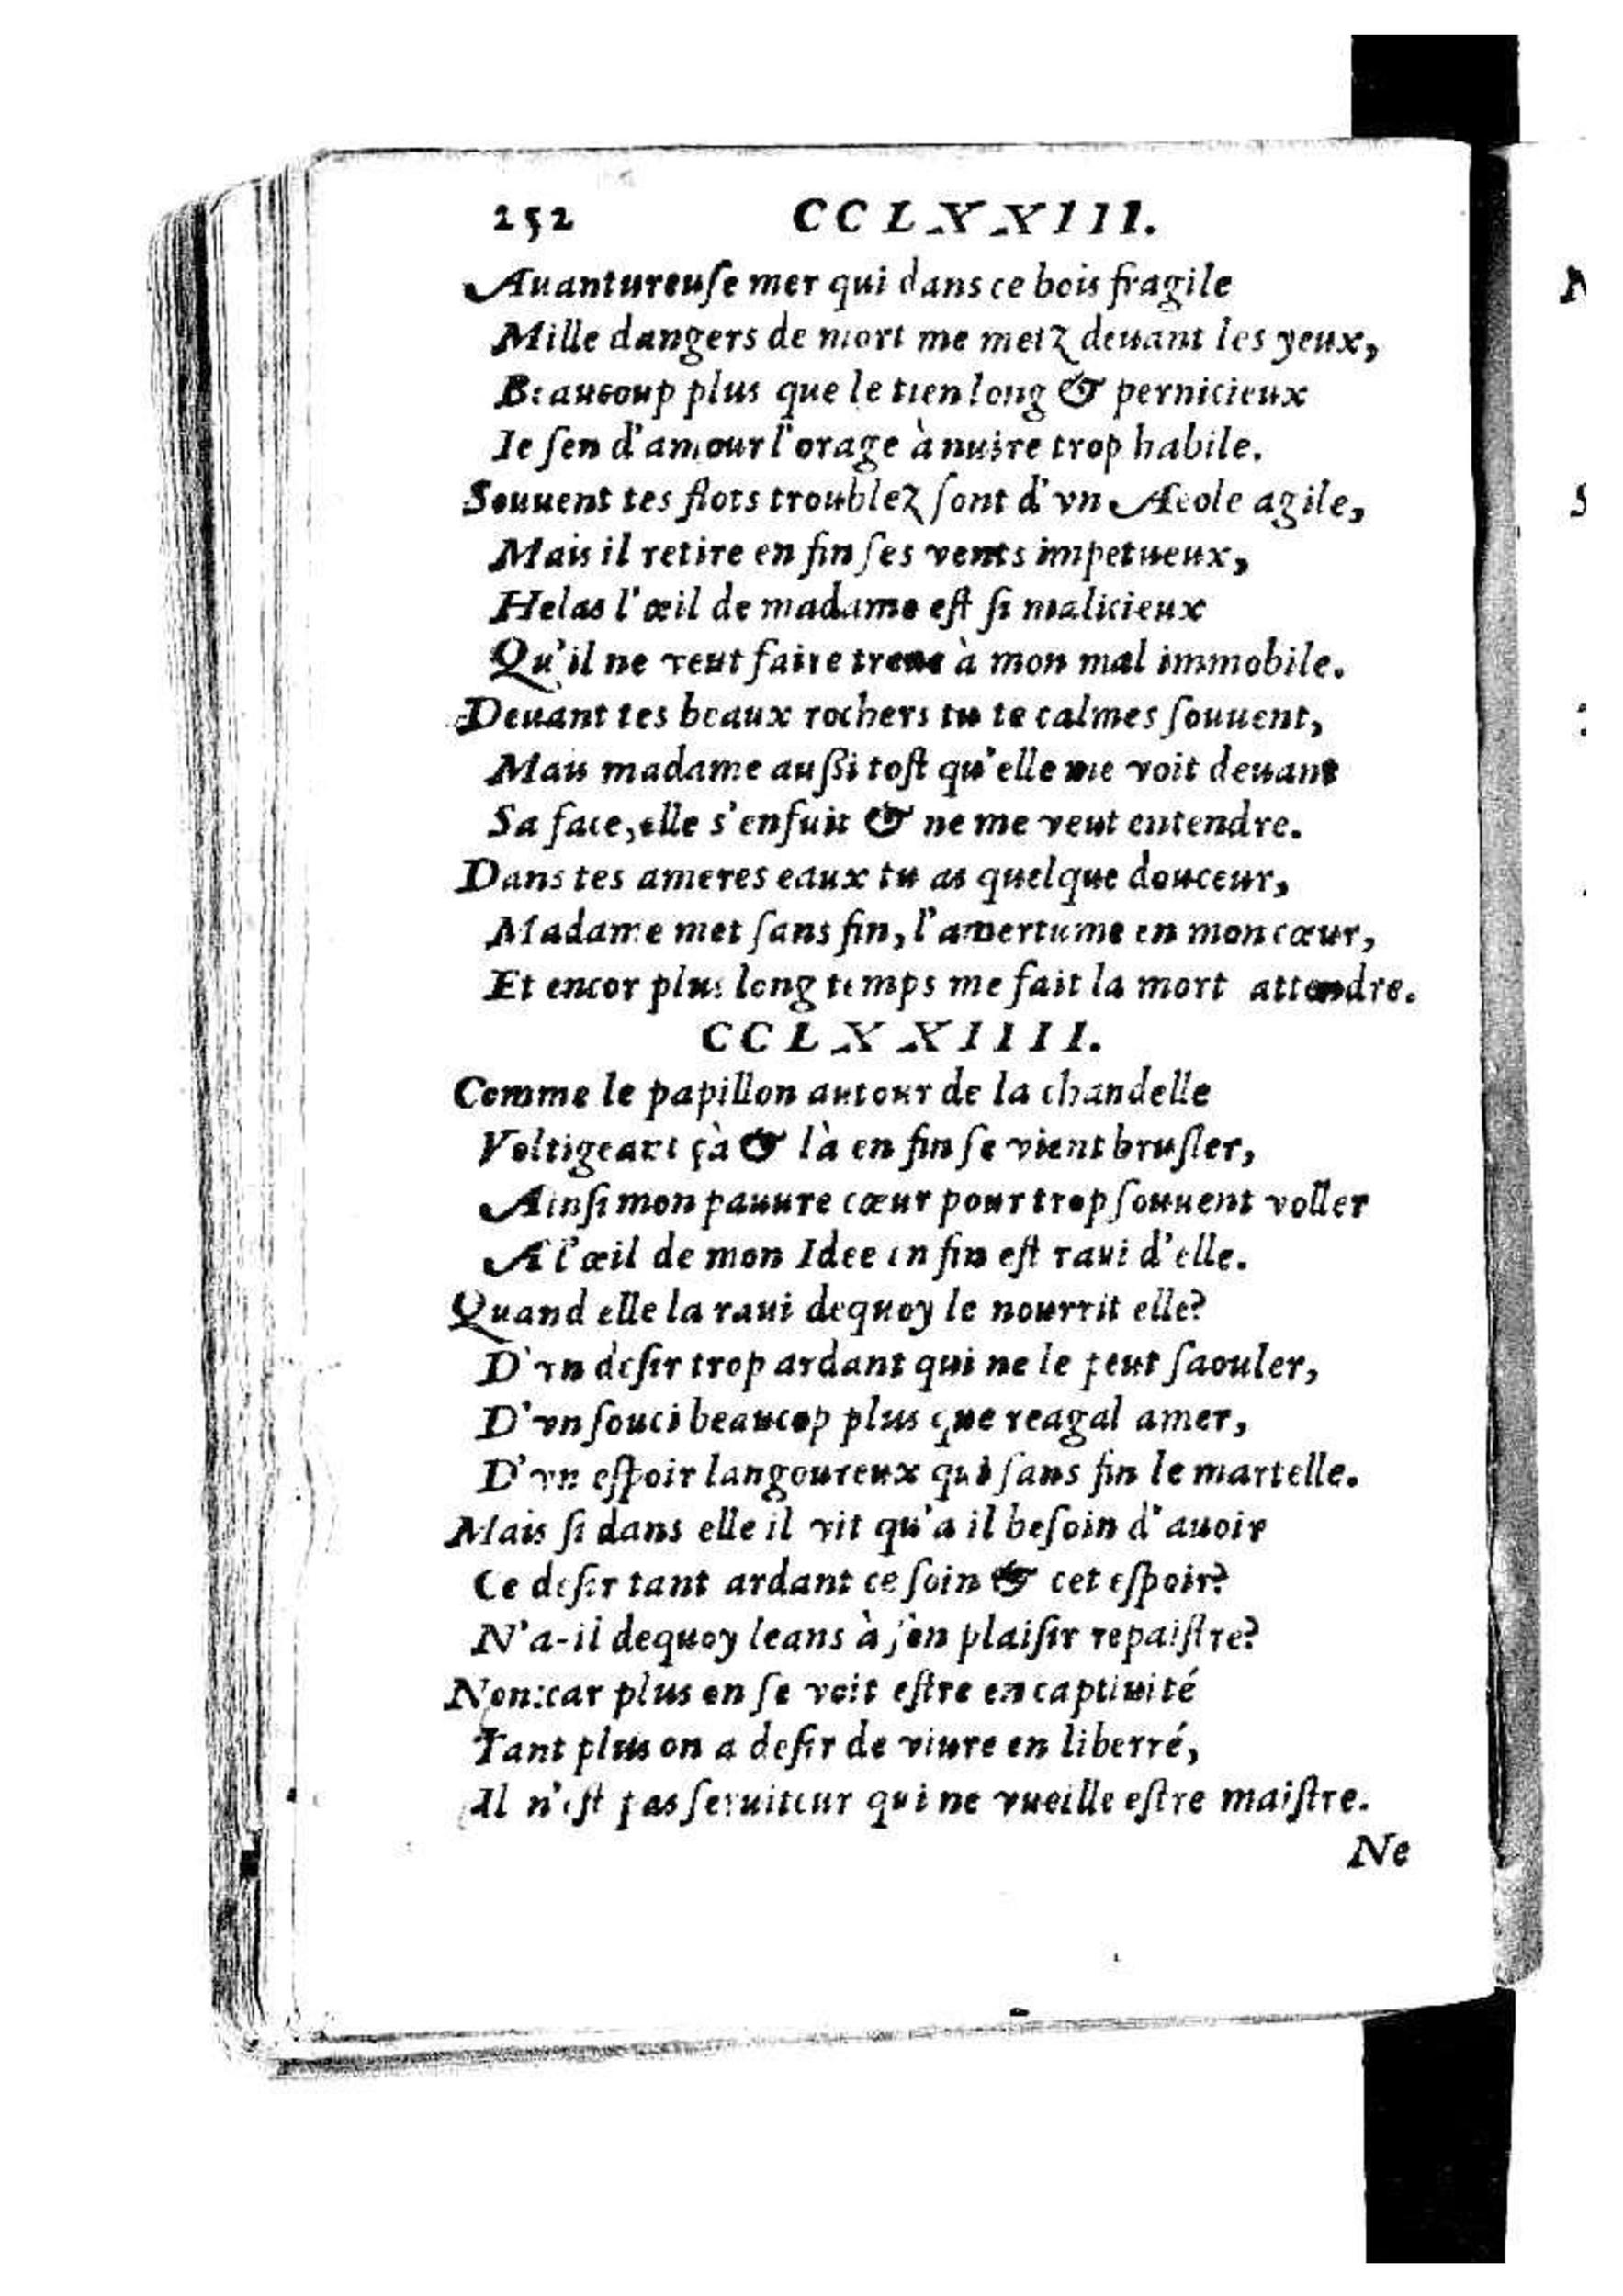 252 CCLXXIII.
Auantureuſe mer qui dans ce bois fragile
Mille dangers de mort me metz deuant les yeux,
Beaucoup plus que le tien long & pernicieux
Ie ſen d'amour l'orage à nuire trop habile.
Souuent tes flots troublez ſont d'vn Æeole agile,
Mais il retire en fin ſes vents impetueux,
Helas l'œil de madame eſt ſi malicieux
Qu'il ne veut faire treue à mon mal immobile.
Deuant tes beaux rochers tu te calmes ſouuent,
Mais madame außi toſt qu'elle me voit deuant
Sa face, elle s'enfuit & ne me veut entendre.
Dans tes ameres eaux tu as quelque douceur,
Madame met ſans fin, l'amertume en mon cœur,
Et encor plus long temps me fait la mort attendre.
CCLXXIIII.
Comme le papillon autour de la chandelle
Voltigeant çà & là en fin ſe vient bruſler,
Ainſi mon pauure cœur pour trop ſouuent voller
A l'œil de mon Idee en fin eſt raui d'elle.
Quand elle la raui dequoy le nourrit elle?
D'vn deſir trop ardant qui ne le peut ſaouler,
D'vn ſouci beaucop plus que reagal amer,
D'vn eſpoir langoureux qui ſans fin le martelle.
Mais ſi dans elle il vit qu'a il beſoin d'auoir
Ce deſir tant ardant ce ſoin & cet eſpoir?
N'a-il dequoy leans à ſ'en plaiſir repaiſtre?
Non:car plus on ſe voit eſtre en captiuité
Tant plus on a deſir de viure en liberré,
Il n'eſt pas ſeruiteur qui ne vueille eſtre maiſtre.
Ne